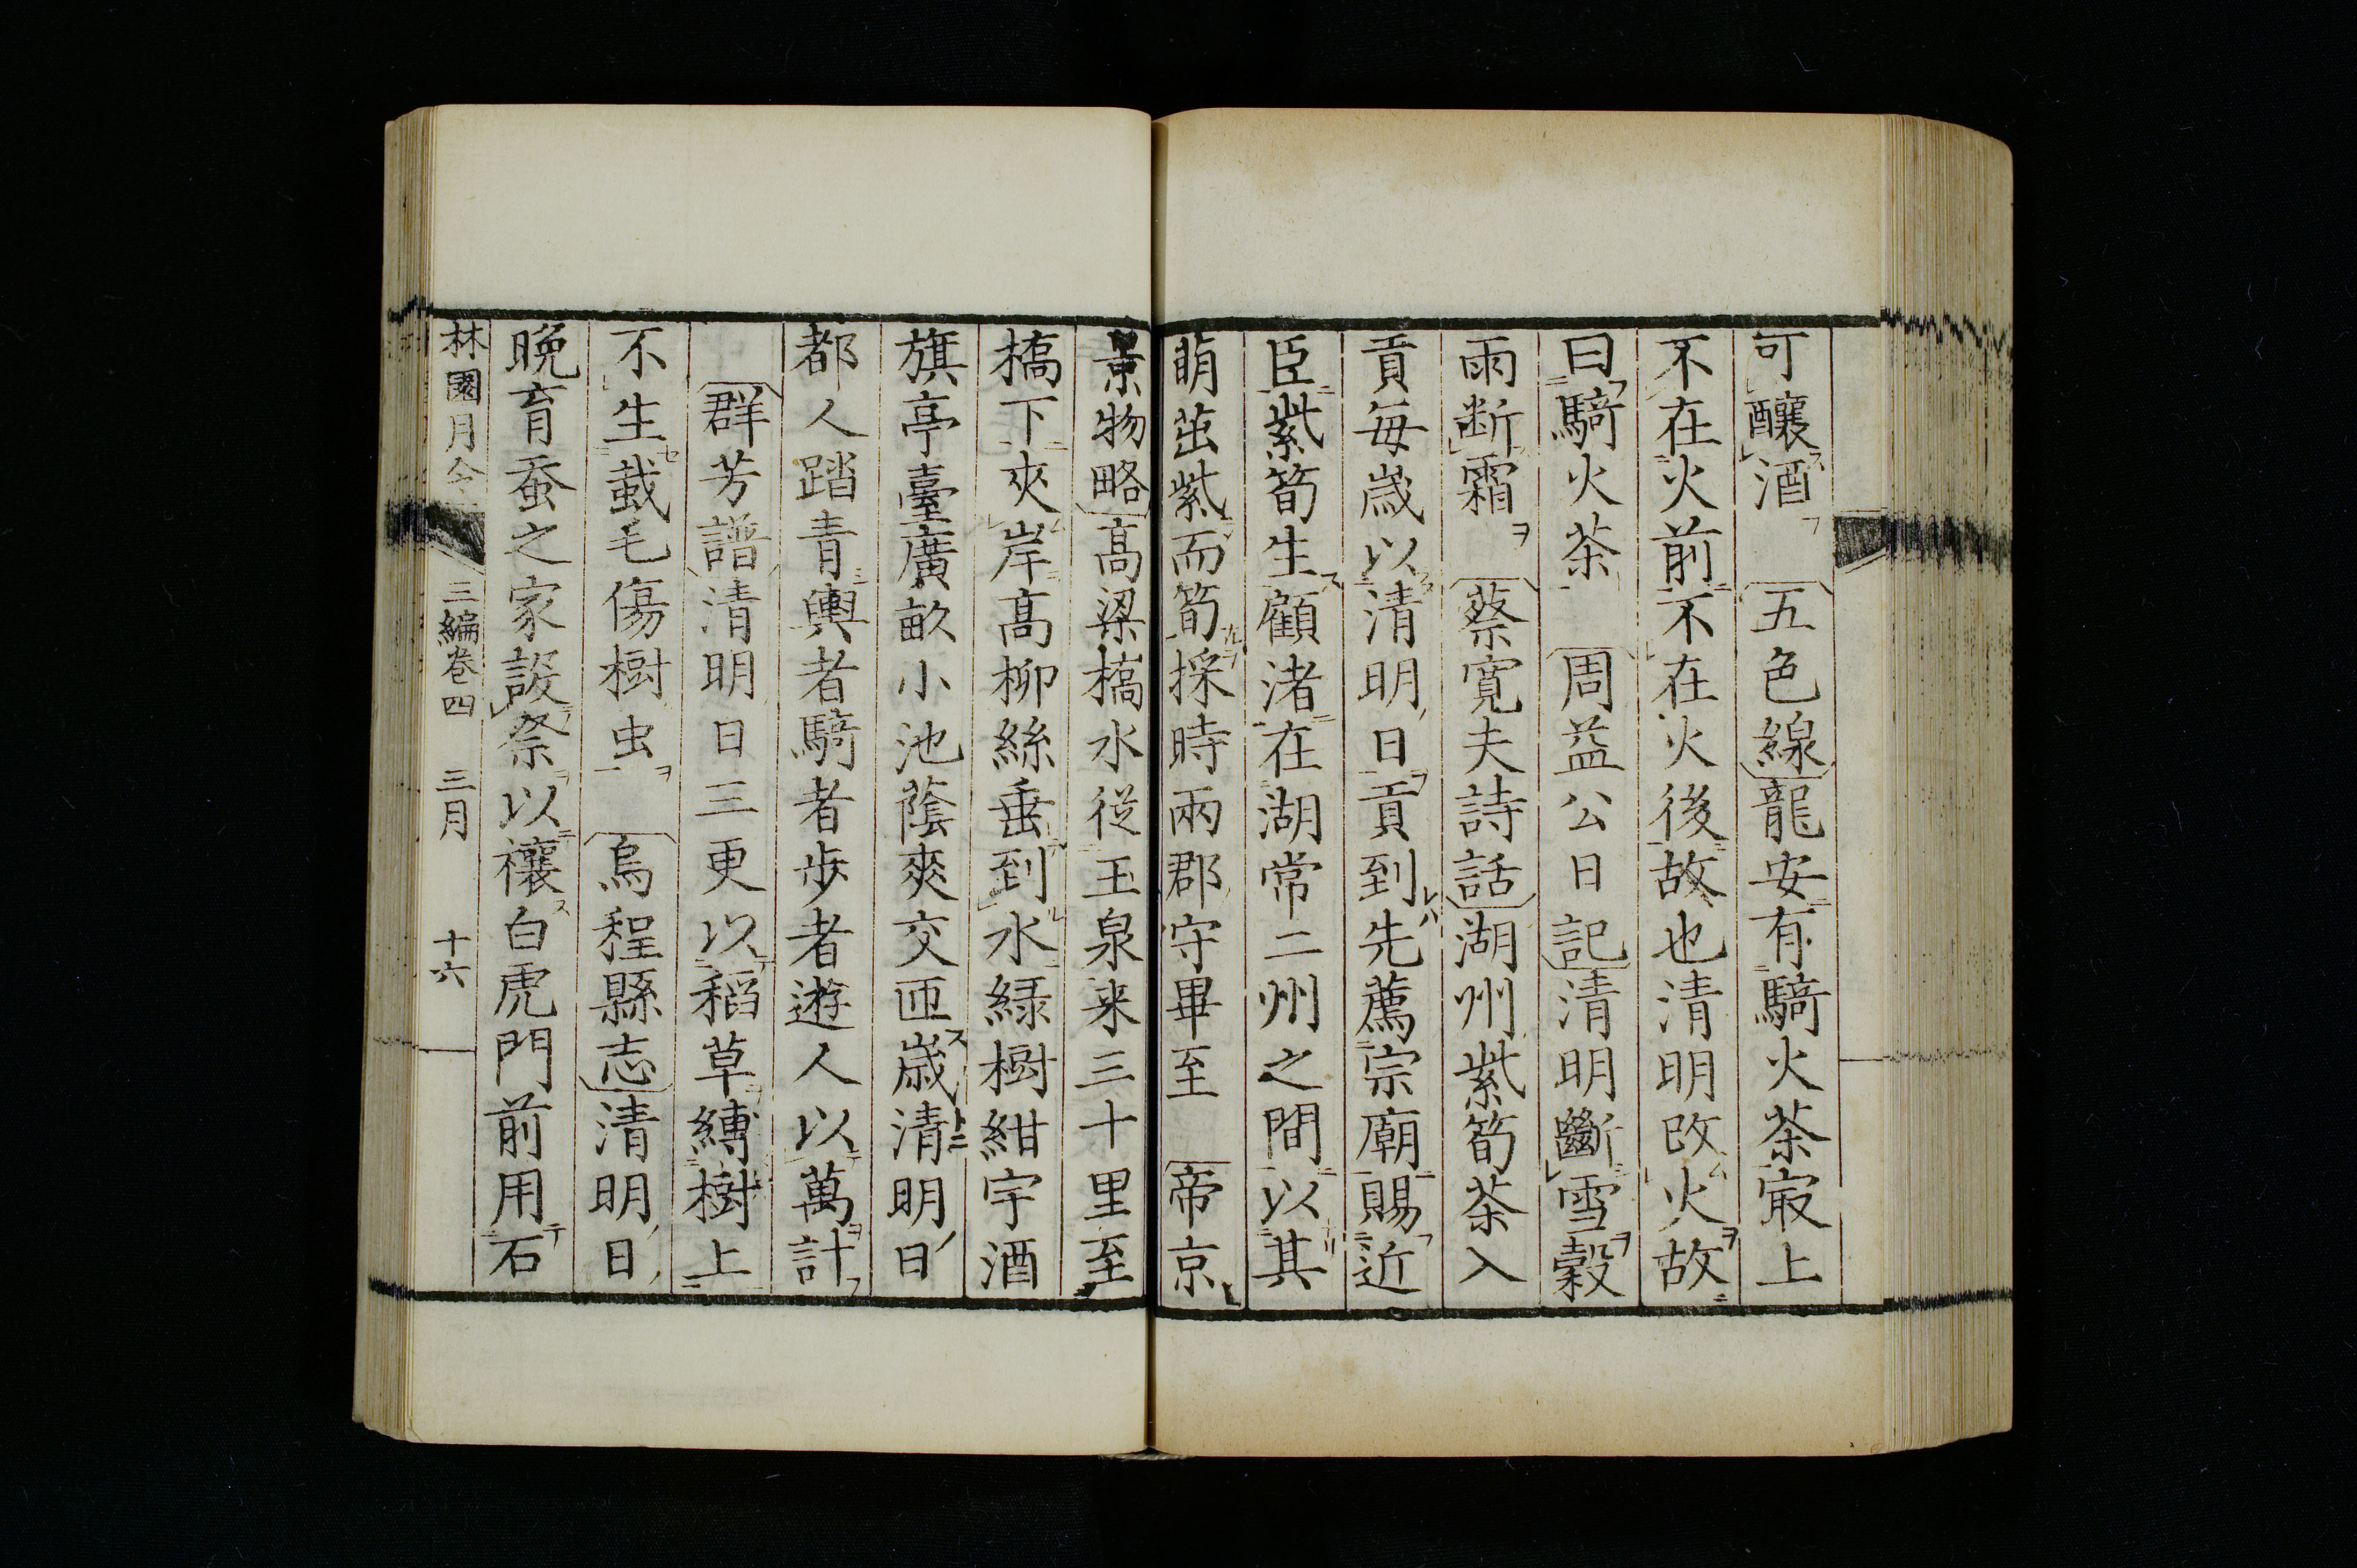 可釀酒　五色線龍安有騎火茶㝡上
不在火前不在火後故也清明改火故
曰騎火茶　周益公日記清明斷雪穀
雨断霜　蔡寬夫詩話湖州紫筍茶入
貢毎歳以清明日貢到先薦宗廟賜近
臣紫筍生顧渚在湖常二州之間以其
萌茁紫而筍採時兩郡守畢至　帝京
景物略高梁橋水從玉泉来三十里至
橋下夾岸高柳絲垂到水緑樹紺宇酒
旗亭臺廣畝小池蔭爽交匝歳清明日
都人踏青輿者騎者歩者遊人以萬計
群芳譜清明日三更以稻草縛樹上
不生蛓毛傷樹虫　烏程縣志清明日
晩育蚕之家設祭以禳白虎門前用石
林園月令　三編巻四　三月　十六